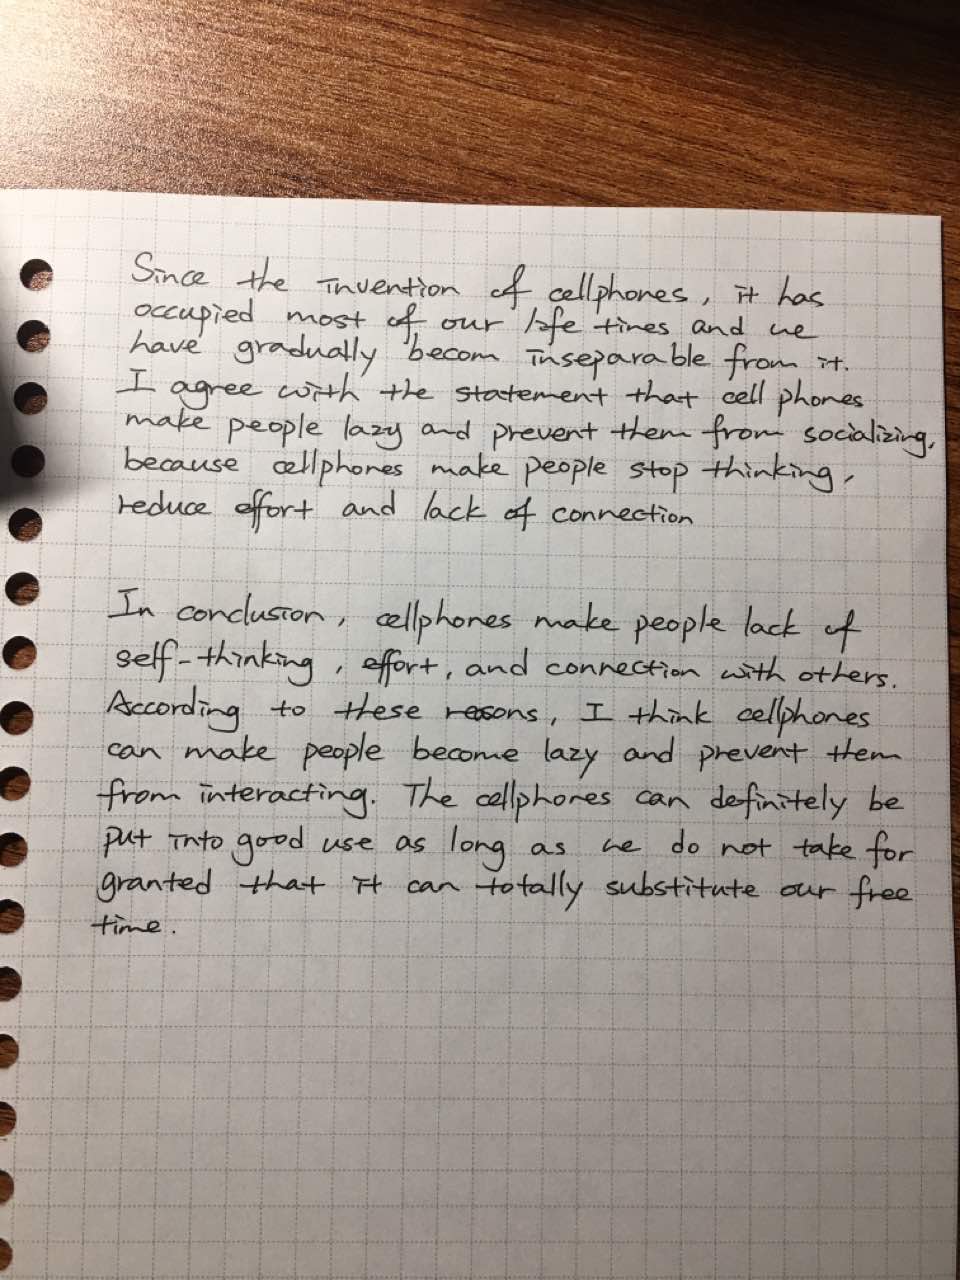 Since the invention of cellphones, it has
occupied most of our life times and we
have gradually becom inseparable from it.
I agree with the statement that cell phones
make people lazy and prevent them from socializing,
because cellphones make people stop thinking,
reduce effort and lack of connection
In conclusion, cellphones make people lack of
self-thinking, effort, and connection with others.
According to these reasons, I think cellphones
can make people become lazy and prevent them
from interacting. The cellphones can definitely be
put into good use as long as we do not take for
granted that it can totally substitute our free
time.